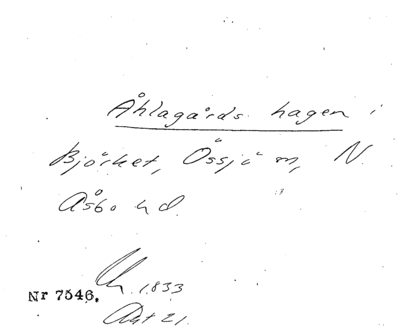 Åhlagårds hagen i
Björket, Össjö m, N.
Åsbo hd.
1833
Nr 7546.
Akt 21.